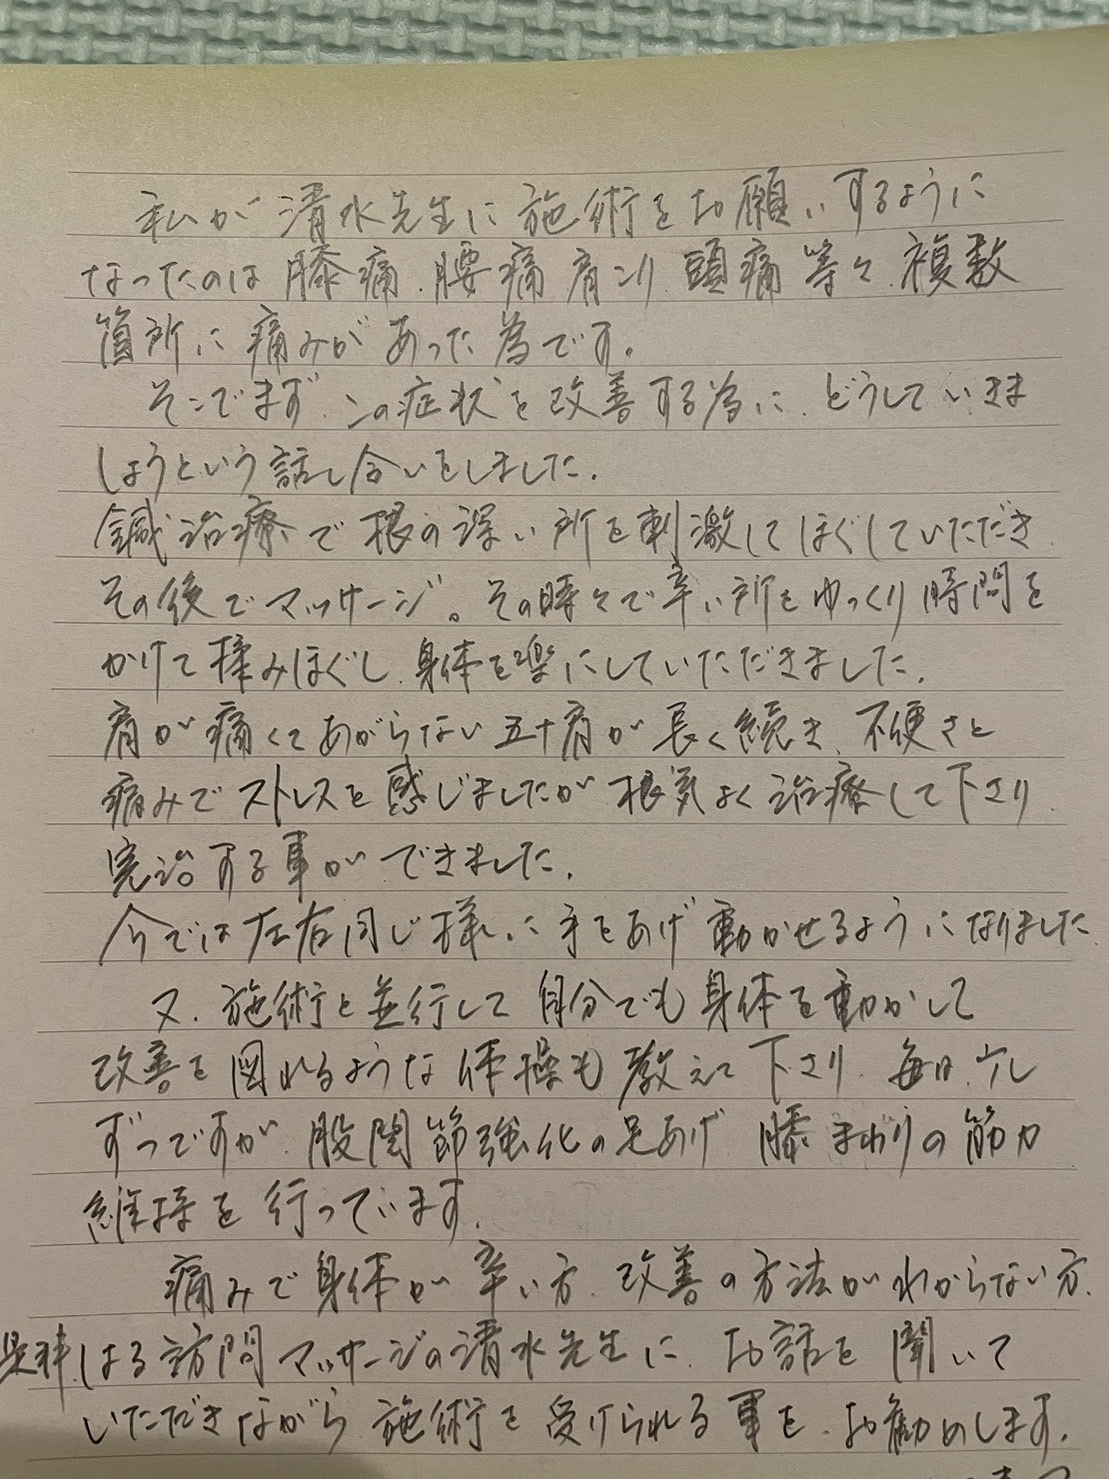 私が清水先生に施術をお願いするように
なったのは膝痛、腰痛肩こり、頭痛等々、複数
箇所に痛みがあった為です。
そこでまず、この症状を改善する為に、どうしていきま
しょうという話し合いをしました。
鍼治療で根の深い所を刺激してほぐしていただき、
その後でマッサージ。その時々で辛い所をゆっくり時間を
かけて揉みほぐし、身体を楽にしていただきました。
肩が痛くてあがらない五十肩が長く続き、不便さと
痛みでストレスを感じましたが根気よく治療して下さり、
完治する事ができました。
今では左右同じ様に手をあげ動かせるようになりました。
又、施術と並行して自分でも身体を動かして
改善を図れるような体操も教えて下さり、毎日、少し
ずつですが、股関節強化の足あげ、膝まわりの筋力
維持を行っています。
痛みで身体が辛い方、改善の方法がわからない方、
是非、はる訪問マッサージの清水先生に、お話を聞いて
いただきながら施術を受けられる事を、お勧めします。